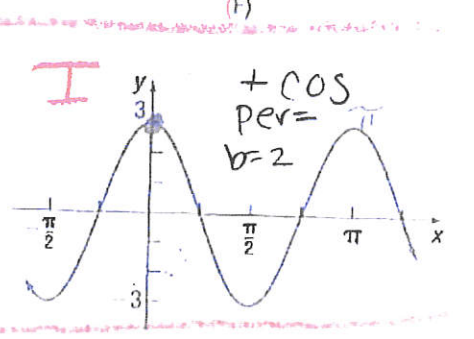 I
y
+ cos
3
per= π
b=2
π
2
π
2
π
x
3